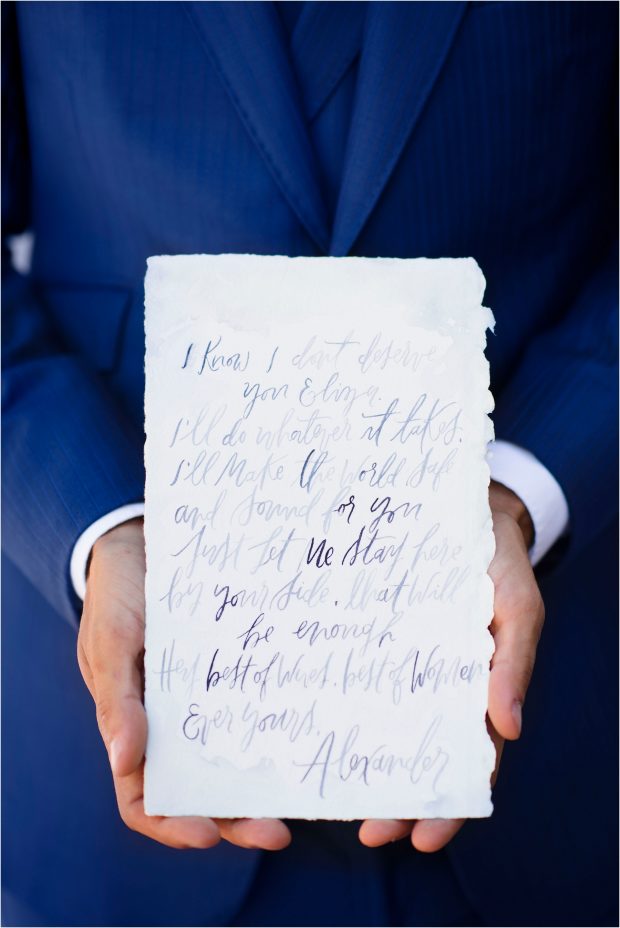 I Know I dont deserve
you Eliza.
I'll do whatever it takes.
I'll Make the World Safe
and Sound for you
Just Let Me Stay here
by your Side. that Will
be enough
Hey best of Wives. best of Women
Ever yours.
Alexander